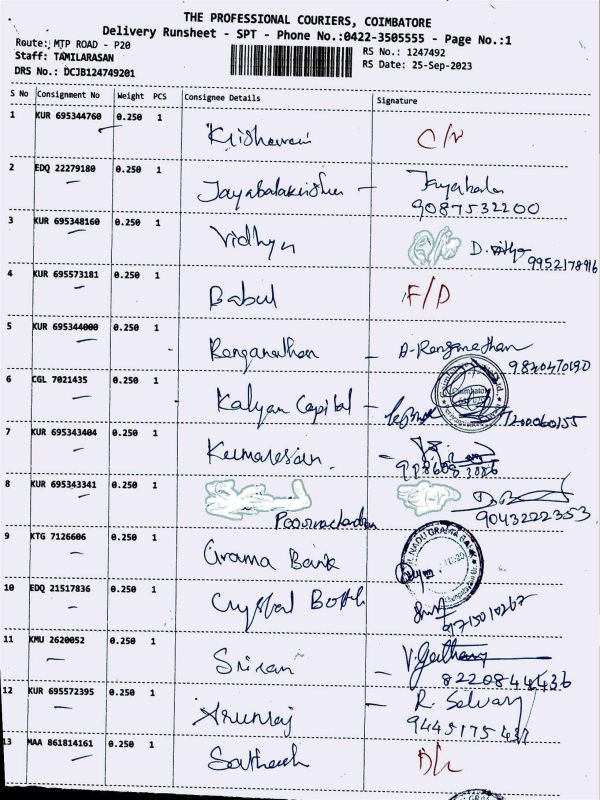 THE PROFESSIONAL COURIERS, COIMBATORE
Delivery Runsheet - SPT - Phone No.:0422-3505555 - Page No.:1
Route: MTP ROAD - P20
RS No.: 1247492
Staff: TAMILARASAN
RS Date: 25-Sep-2023
DRS No.: DCJB124749201
S No Consignment No Weight PCS Consignee Details Signature
1 KUR 695344760 0.250 1
2 EDQ 22279180 0.250 1 Jayabalakrishnan - Jayabala
9087532200
3 KUR 695348160 0.250 1 Vidhya D.
9952178916
4 KUR 695573181 0.250 1 Babul F/D
5 KUR 695344000 0.250 1 Ranganathan - A-Ranganathan
6 CGL 7021435 0.250 1 Kalyan Capital -
Coimbatore
7 KUR 695343404 0.250 1 Kumaresan. -
8 KUR 695343341 0.250 1
9043222353
9 KTG 7126606 0.250 1 Grama Bank
NADU GRAMA BANK
10 EDQ 21517836 0.250 1 Crystal
9715010267
11 KMU 2620052 0.250 1 Sriran -
8220844436
12 KUR 695572395 0.250 1 Arunraj - R. Selvaraj
9445175437
13 MAA 861814161 0.250 1 Satheesh